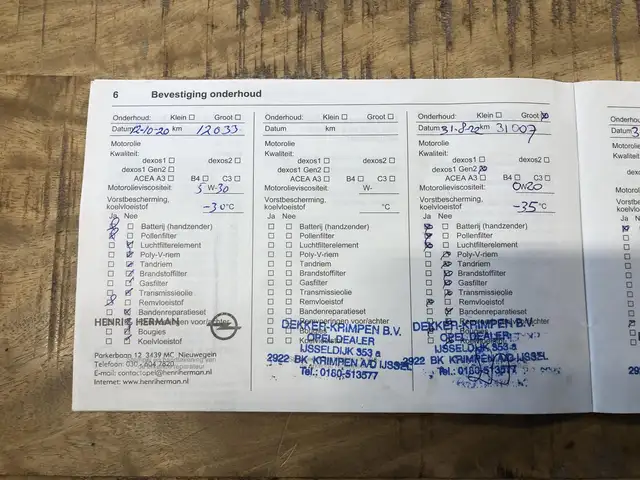 6 Bevestiging onderhoud
Onderhoud: Klein Groot
Datum 12-10-20 km 12033
Motorolie
Kwaliteit:
dexos1 dexos2
dexos1 Gen2
ACEA A3 B4 C3
Motorolieviscositeit: 5 W-30
Vorstbescherming,
koelvloeistof -30 °C
Ja Nee
Batterij (handzender)
Pollenfilter
Luchtfilterelement
Poly-V-riem
Tandriem
Brandstoffilter
Gasfilter
Transmissieolie
Remvloeistof
Bandenreparatieset
HENRI G HERMAN
Bougies
Koelvloeistof
Parkerbaan 12 3439 MC Nieuwegein
Telefoon: 030
E-mail: contactopel@henriherman.nl
Internet: www.henriherman.nl
Onderhoud: Klein Groot
Datum km
Motorolie
Kwaliteit:
dexos1 dexos2
dexos1 Gen2
ACEA A3 B4 C3
Motorolieviscositeit: W-
Vorstbescherming,
koelvloeistof °C
Ja Nee
Batterij (handzender)
Pollenfilter
Luchtfilterelement
Poly-V-riem
Tandriem
Brandstoffilter
Gasfilter
Transmissieolie
Remvloeistof
Bandenreparatieset
DEKKER-KRIMPEN B.V.
OPEL DEALER
IJSSELDIJK 353 a
2922 BK KRIMPEN A/D IJSSEL
Tel.: 0180-513577
Onderhoud: Klein Groot
Datum 31-8-22 km 31007
Motorolie
Kwaliteit:
dexos1 dexos2
dexos1 Gen2
ACEA A3 B4 C3
Motorolieviscositeit: 0W20
Vorstbescherming,
koelvloeistof -35 °C
Ja Nee
Batterij (handzender)
Pollenfilter
Luchtfilterelement
Poly-V-riem
Tandriem
Brandstoffilter
Gasfilter
Transmissieolie
Remvloeistof
Bandenreparatieset
DEKKER-KRIMPEN B.V.
OPEL DEALER
IJSSELDIJK 353 a
2922 BK KRIMPEN A/D IJSSEL
Tel.: 0180-513577